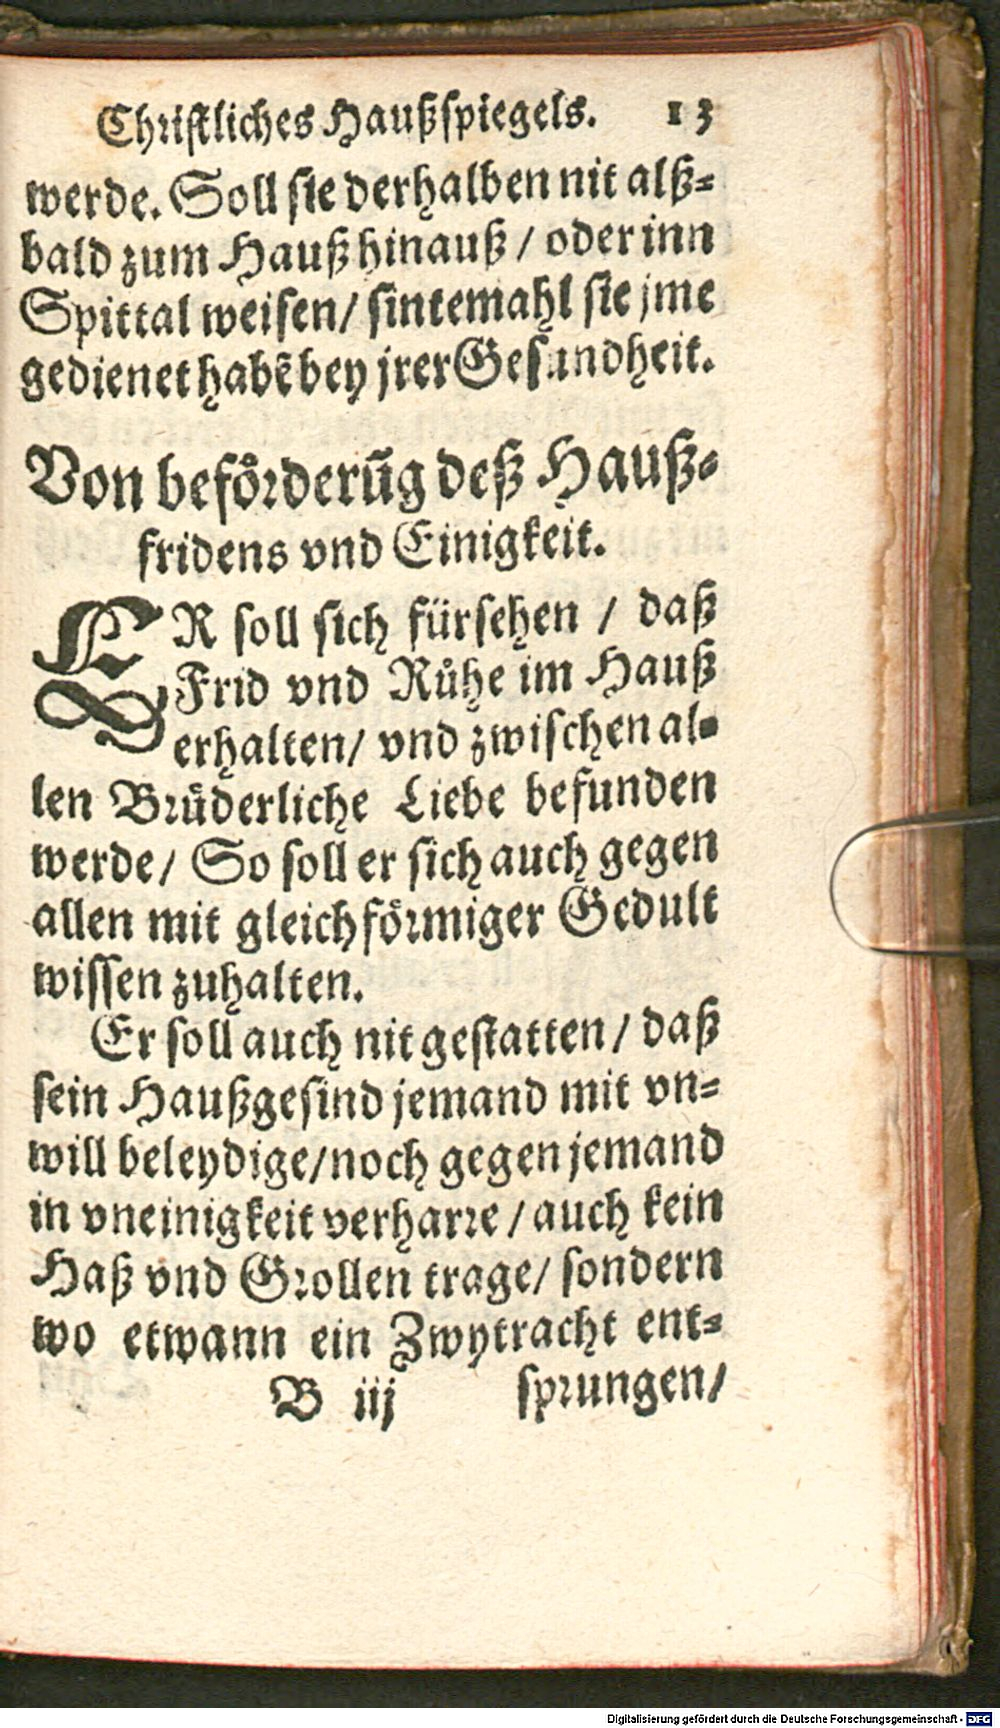 Christliches Haußspiegels. 13
werde. Soll sie derhalben nit alß⸗
bald zum Hauß hinauß / oder inn
Spittal weisen/ sintemahl sie jme
gedienet habẽ bey jrer Gesundheit.
Von befoͤrderũg deß Hauß⸗
fridens vnd Einigkeit.
ER soll sich fürsehen / daß
Frid vnd Růhe im Hauß
erhalten/ vnd zwischen al⸗
len Bruͤderliche Liebe befunden
werde/ So soll er sich auch gegen
allen mit gleichfoͤrmiger Gedult
wissen zuhalten.
Er soll auch nit gestatten / daß
sein Haußgesind jemand mit vn⸗
will beleydige/noch gegen jemand
in vneinigkeit verharre / auch kein
Haß vnd Grollen trage/ sondern
wo etwann ein Zwytracht ent⸗
B iij sprungen/
Digitalisierung gefördert durch die Deutsche Forschungsgemeinschaft - DFG